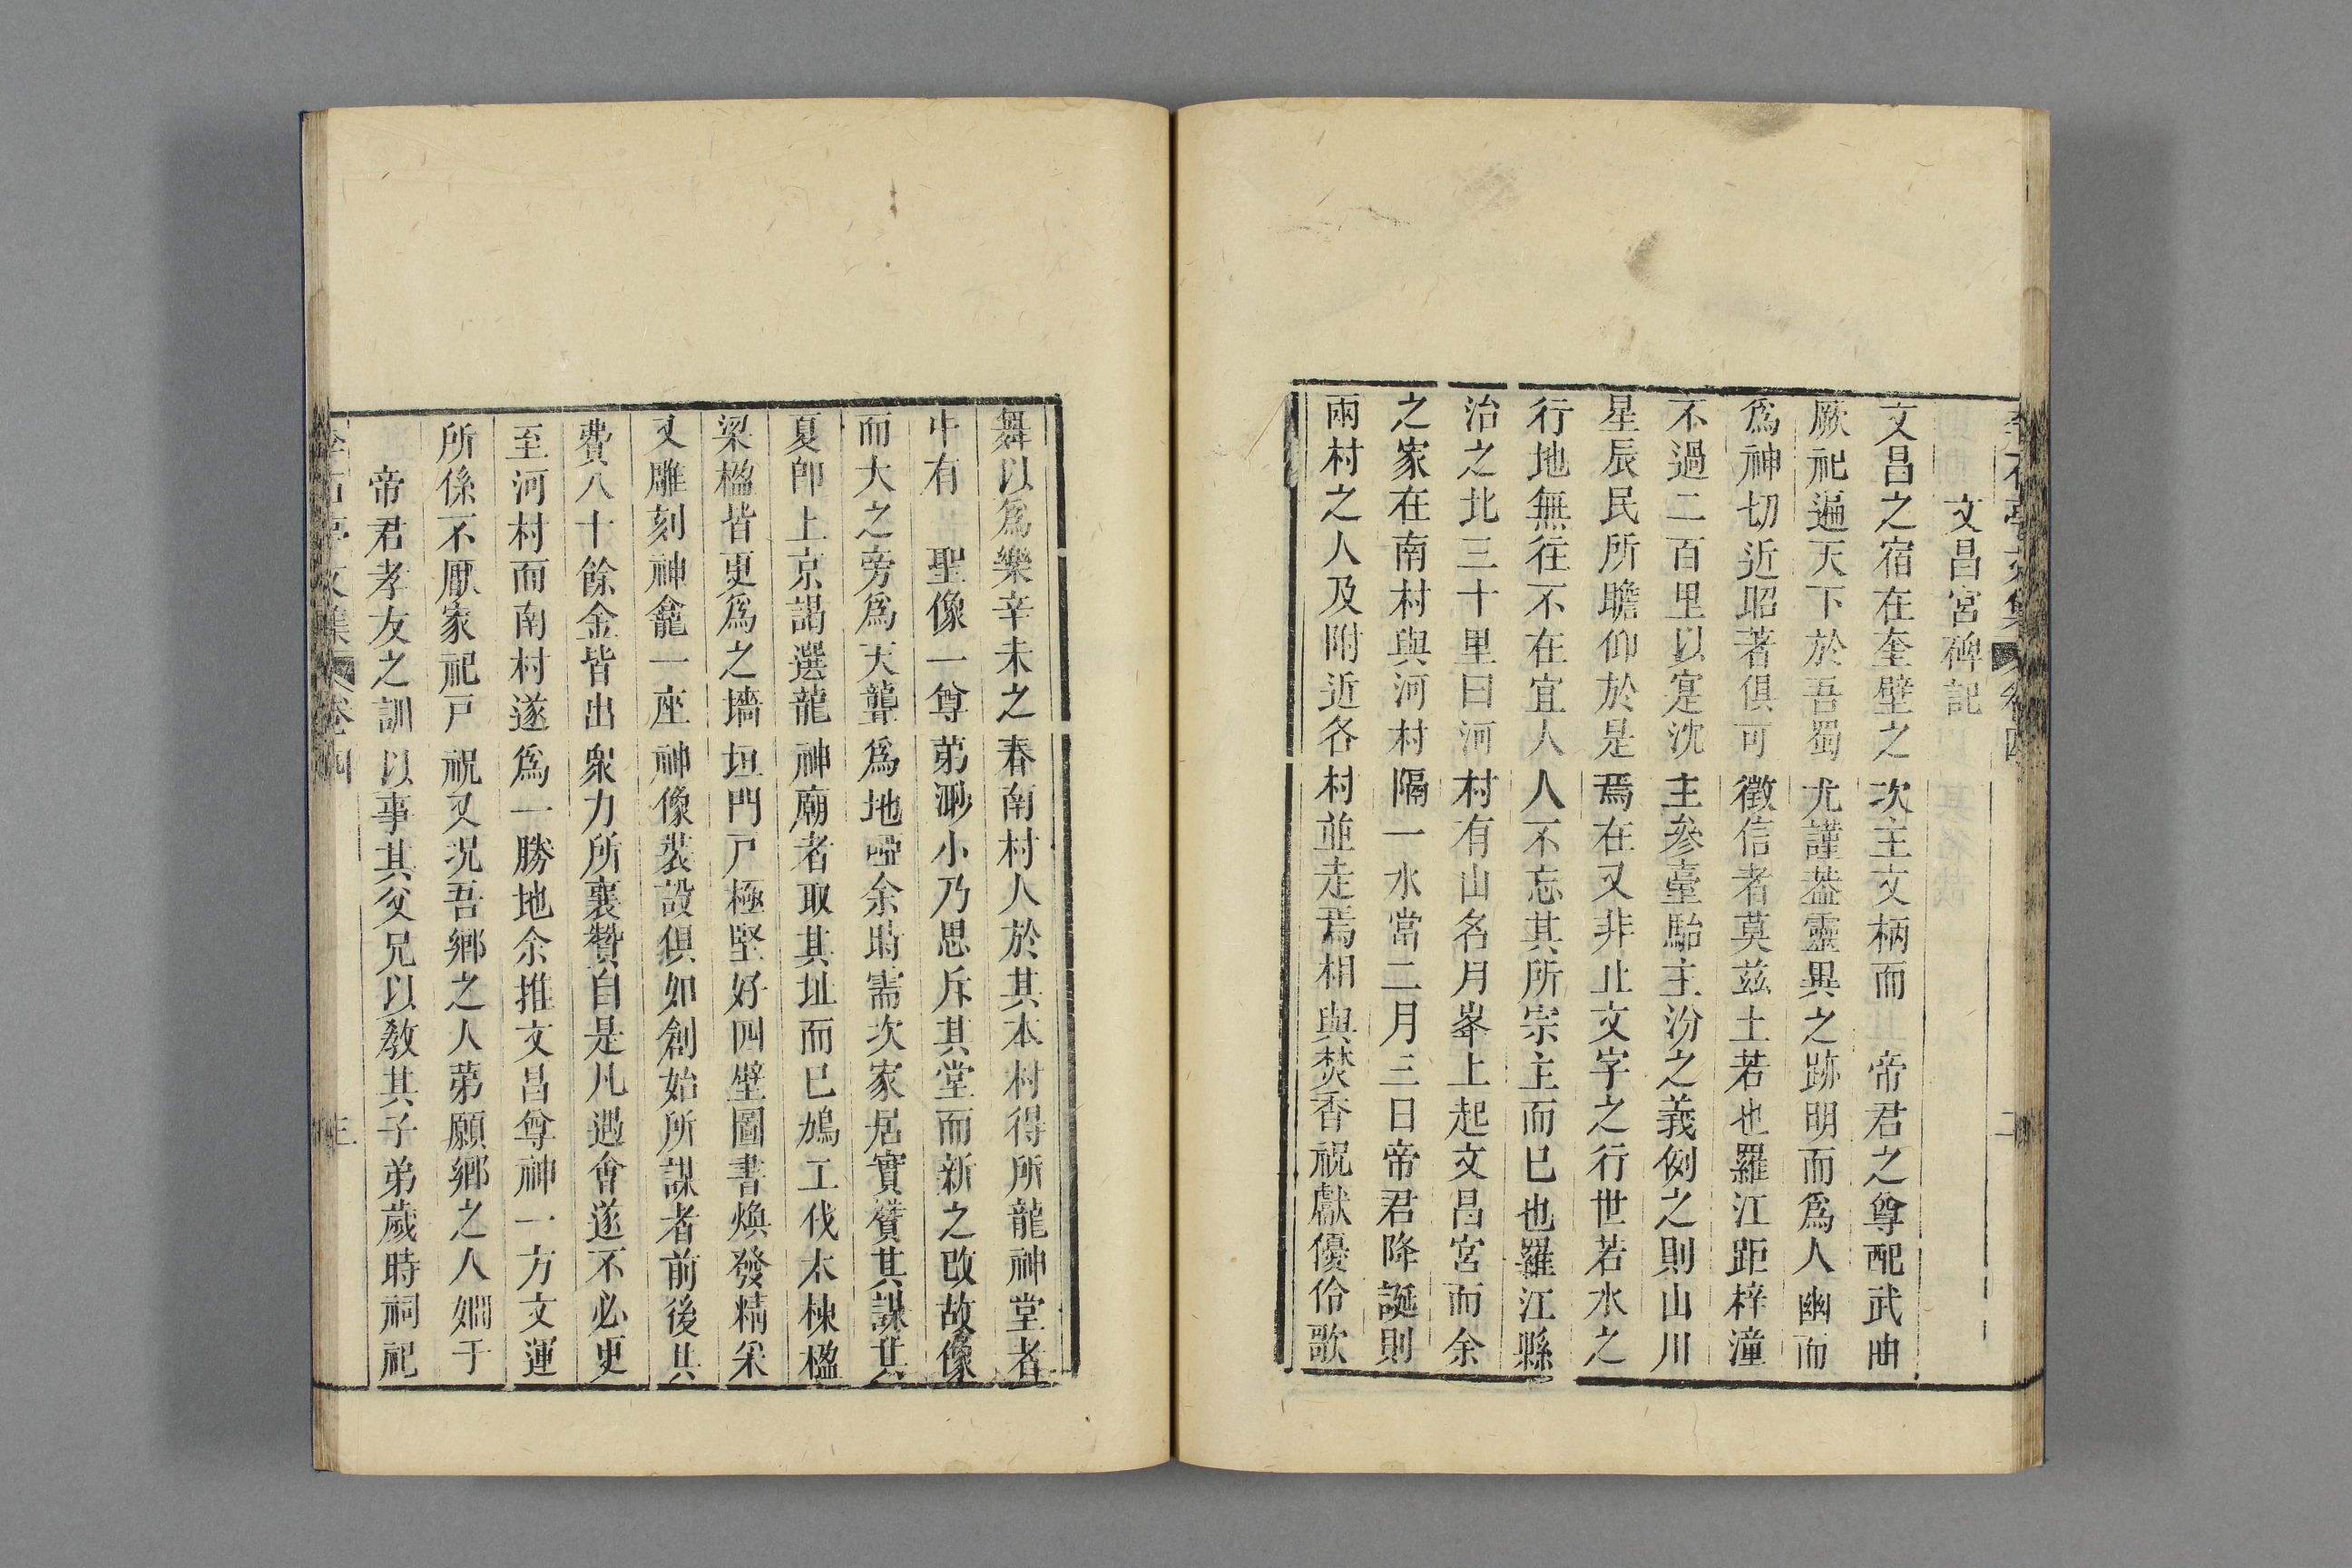 文昌宮碑記
文昌之宿在奎壁之次主文柄而　帝君之尊配武曲
厥祀遍天下於吾蜀尤謹葢靈異之跡明而爲人幽而
爲神切近昭著俱可徵信者莫兹土若也羅江距梓潼
不過二百里以寔沈主參臺駘主汾之義例之則山川
星辰民所瞻仰於是焉在又非止文字之行世若水之
行地無徃不在宜人人不忘其所宗主而巳也羅江縣
治之北三十里曰河村有山名月峯上起文昌宮而余
之家在南村與河村隔一水當二月三日帝君降誕則
兩村之人及附近各村並走焉相與焚香祝獻優伶歌
舞以爲樂辛未之春南村人於其本村得所龍神堂者
中有　聖像一尊第渺小乃思斥其堂而新之改故像
而大之旁爲天聾爲地啞余時需次家居實贊其謀其
夏卽上京謁選龍神廟者取其址而巳鳩工伐太棟楹
梁楹皆更爲之墻垣門戸極堅好四壁圖書煥發精采
又雕刻神龕一座神像裝設俱如創始所謀者前後共
費八十餘金皆出衆力所襄贊自是凡遇會遂不必更
至河村而南村遂爲一勝地余推文昌尊神一方文運
所係不厭家祀戸祝又况吾鄉之人第願鄉之人嫺于
帝君孝友之訓以事其父兄以敎其子弟歲時祠祀
卷四
三